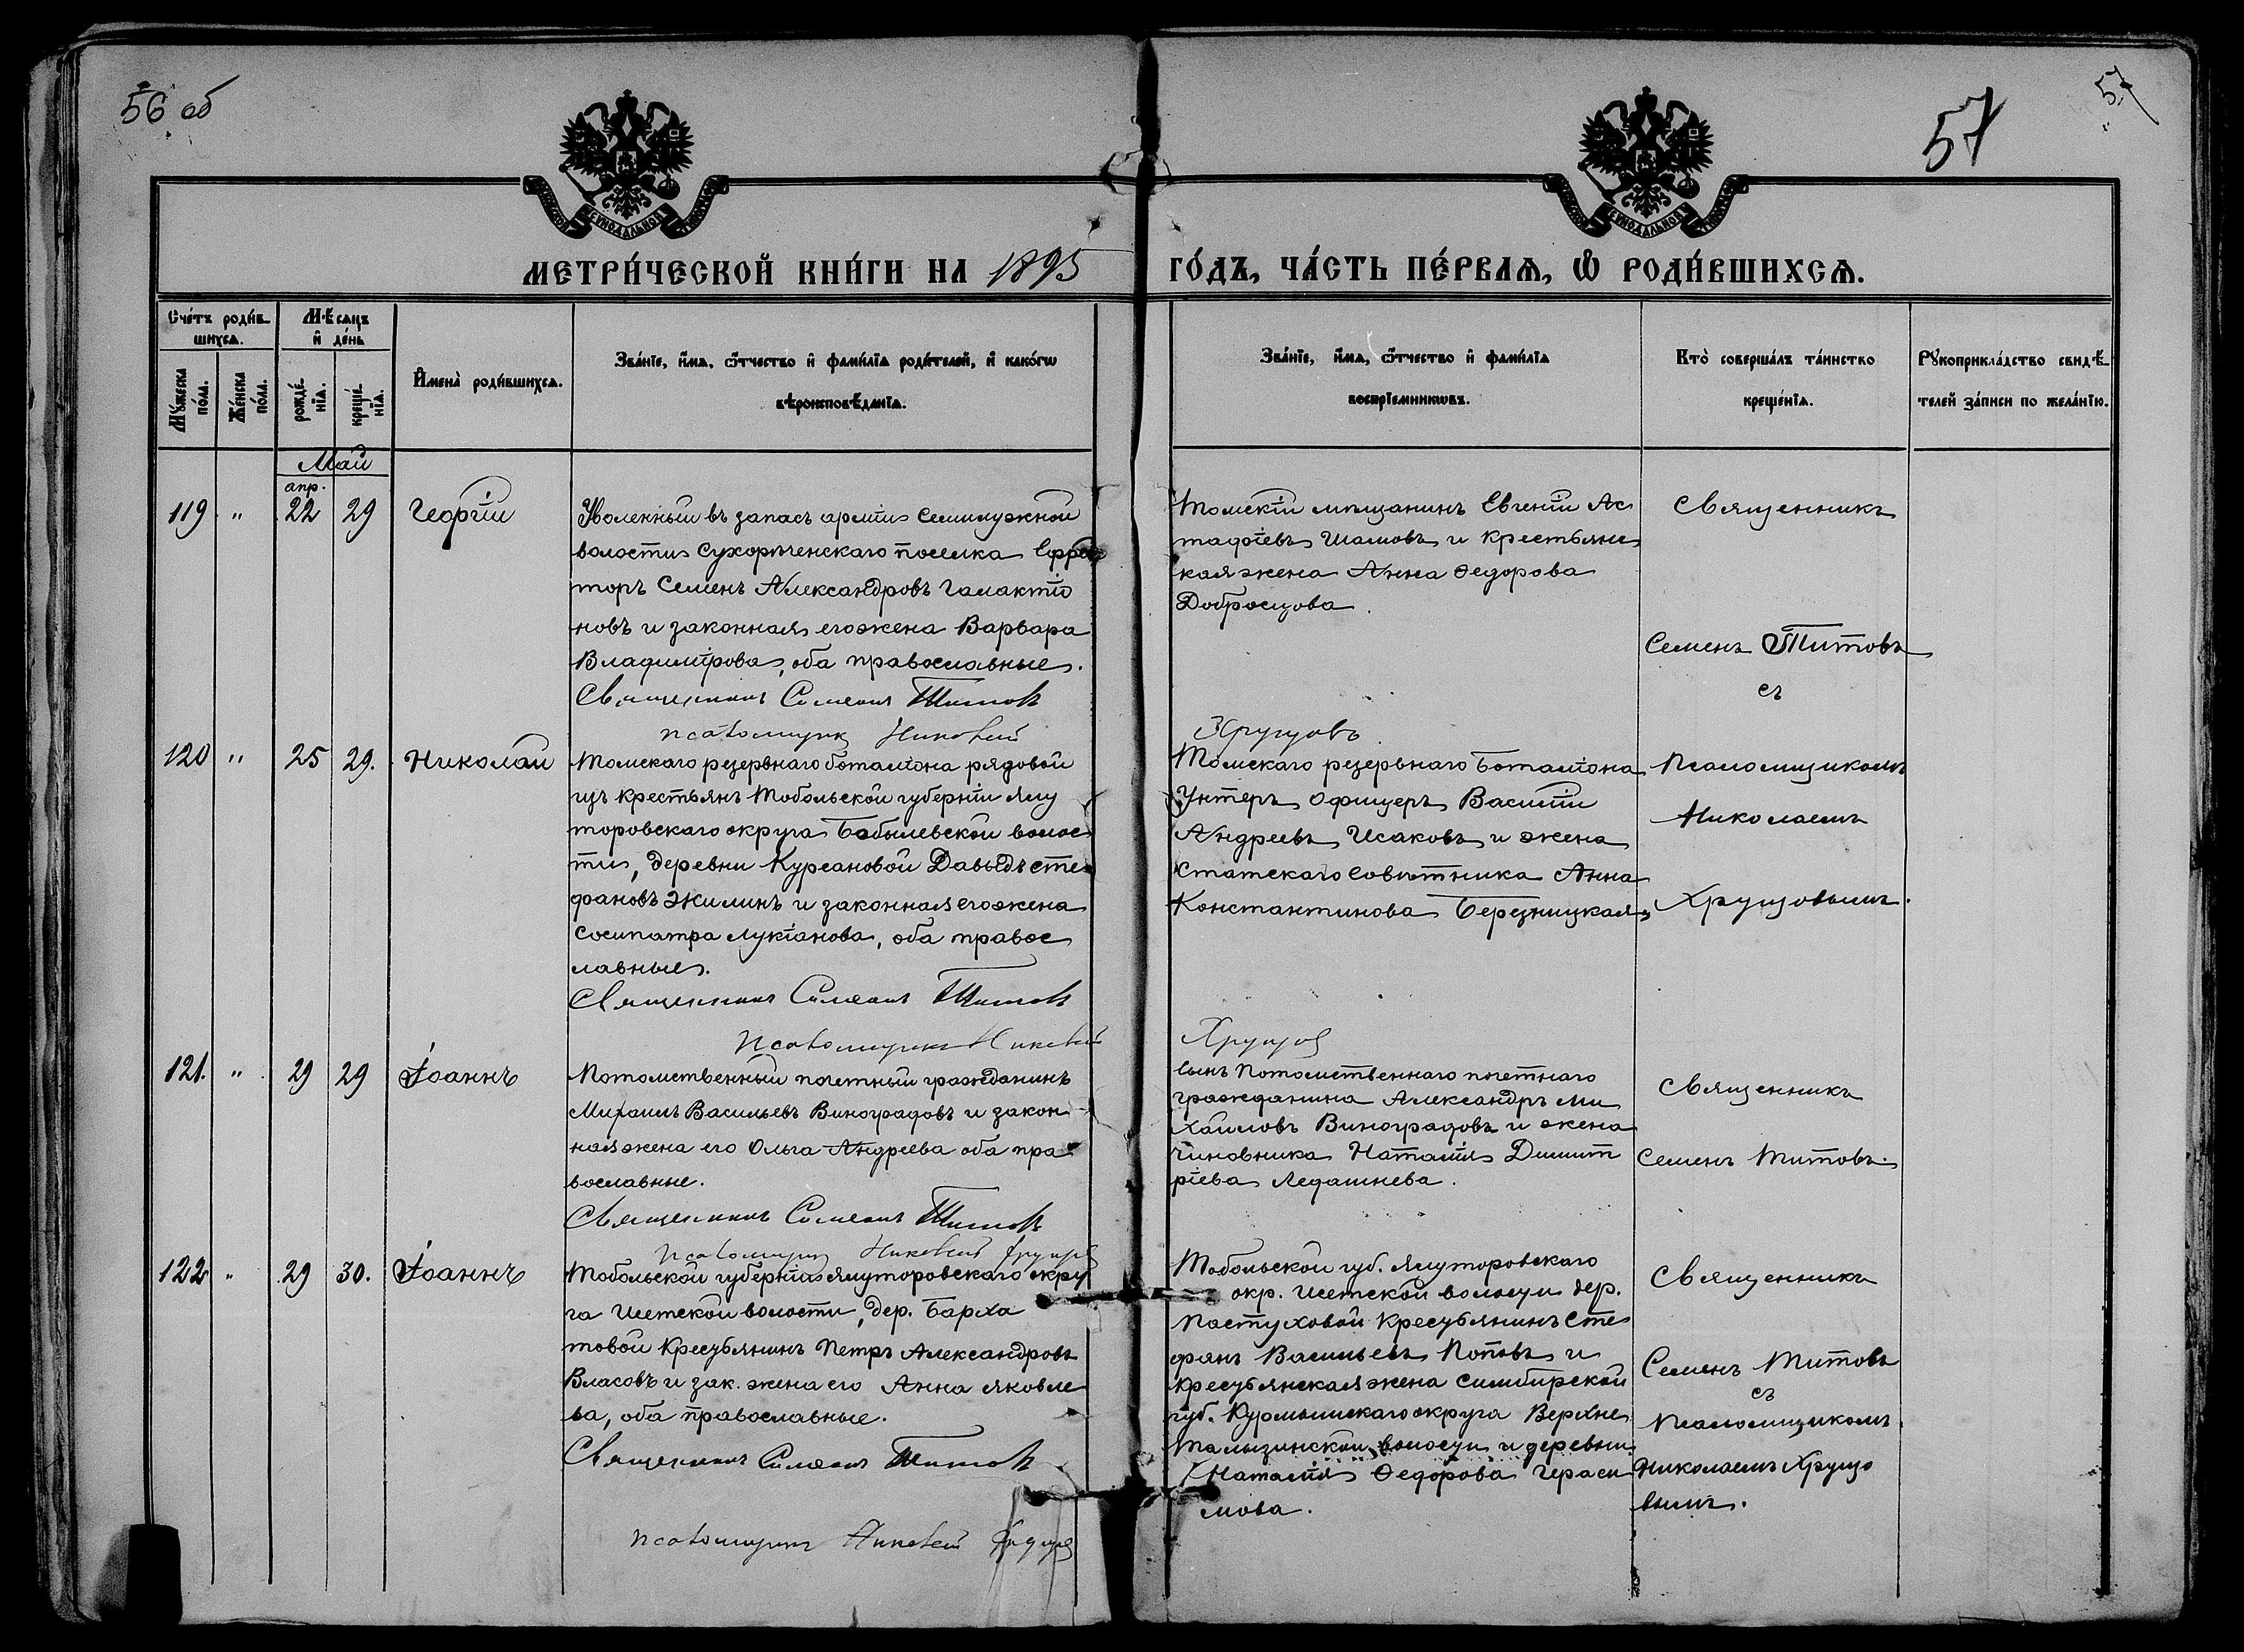 56 об
57
57
МЕТРИ́ЧЕСКОЙ КНИ́ГИ НА 1895 ГО́ДЪ, ЧА́СТЬ ПЕ́РВАѦ, Ѿ РОДИ́ВШИХСѦ.
Счéтъ роди́в-
шихсѧ.
Мꙋ́жеска
по́ла.
Же́нска
по́ла.
Мѣ́сѧцъ
и҆ де́нь
рожде́-
нїѧ.
креще́-
нїѧ.
И҆мена̀ роди́вшихсѧ.
Зва́нїе, и҆́мѧ, ѻ҆́тчество и҆ фами́лїѧ роди́телей, и҆ како́гѡ
вѣроисповѣ́данїѧ.
Зва́нїе, и҆́мѧ, ѻ҆́тчество и҆ фами́лїѧ
воспрїе́мникѡвъ.
Кто̀ соверша́лъ та́инство
креще́нїѧ.
Рꙋкоприкла́дство свидѣ́-
телей за́писи по жела́нїю.
Май
апр.
119 " 22 29 Георгій
Уволенный въ запасъ арміи Семилужной
волости Сухорѣченскаго поселка Ефрей
торъ Семенъ Александровъ Галактіо
новъ и законная его жена Варвара
Владимірова, оба православные.
Священникъ Симеонъ Титовъ
псаломщик Николай Хрущовъ
Томскій мѣщанинъ Евгеній Ас
тафіевъ Шамовъ и крестьянс
кая жена Анна Ѳедорова
Добросцова.
Священникъ
Семенъ Титовъ
съ
120 " 25 29. Николай
Томскаго резервнаго боталіона рядовой
изъ крестьянъ Тобольской губерніи Ялу
торовскаго округа Бобылевской волос
ти, деревни Курсановой Давыдъ Сте
фановъ Жилинъ и законная его жена
Сосипатра Лукіанова, оба правос
лавные.
Священникъ Симеонъ Титовъ
псаломщикъ Николай Хрущов
Томскаго резервнаго Боталіона
Унтеръ Офицеръ Василій
Андреевъ Исаковъ и жена
Статскаго Совѣтника Анна
Константинова Березницкая
Псаломщикомъ
Николаемъ
Хрущовымъ.
121. " 29 29 Іоаннъ
Потомственный почетный гражданинъ
Михаилъ Васильевъ Виноградовъ и закон
ная жена его Ольга Андреева оба пра
вославные.
Священникъ Симеонъ Титовъ
псаломщик Николай Хрущов
сынъ Потомственнаго почетнаго
гражданина Александръ Ми
хаиловъ Виноградовъ и жена
чиновника Наталія Димит
ріева Ледашнева.
Священникъ
Семенъ Титовъ.
122 " 29 30. Іоаннъ
Тобольской губерніи Ялуторовскаго окру
га Исетской волости, дер. Барха
товой Крестьянинъ Петръ Александровъ
Власовъ и зак. жена его Анна Яковле
ва, оба православные.
Священникъ Симеонъ Титовъ
псаломщикъ Николай Хрущов
Тобольской губ. Ялуторовскаго
окр. Исетской волости дер.
Пастуховой Крестьянинъ Сте
фанъ Васильевъ Поповъ и
Крестьянская жена Симбирской
губ. Курмышскаго округа Верхне
Талызинской волости и деревни
Наталія Ѳедорова Гераси
мова.
Священникъ
Семенъ Титовъ
съ
Псаломщикомъ
Николаемъ Хрущо
вымъ.